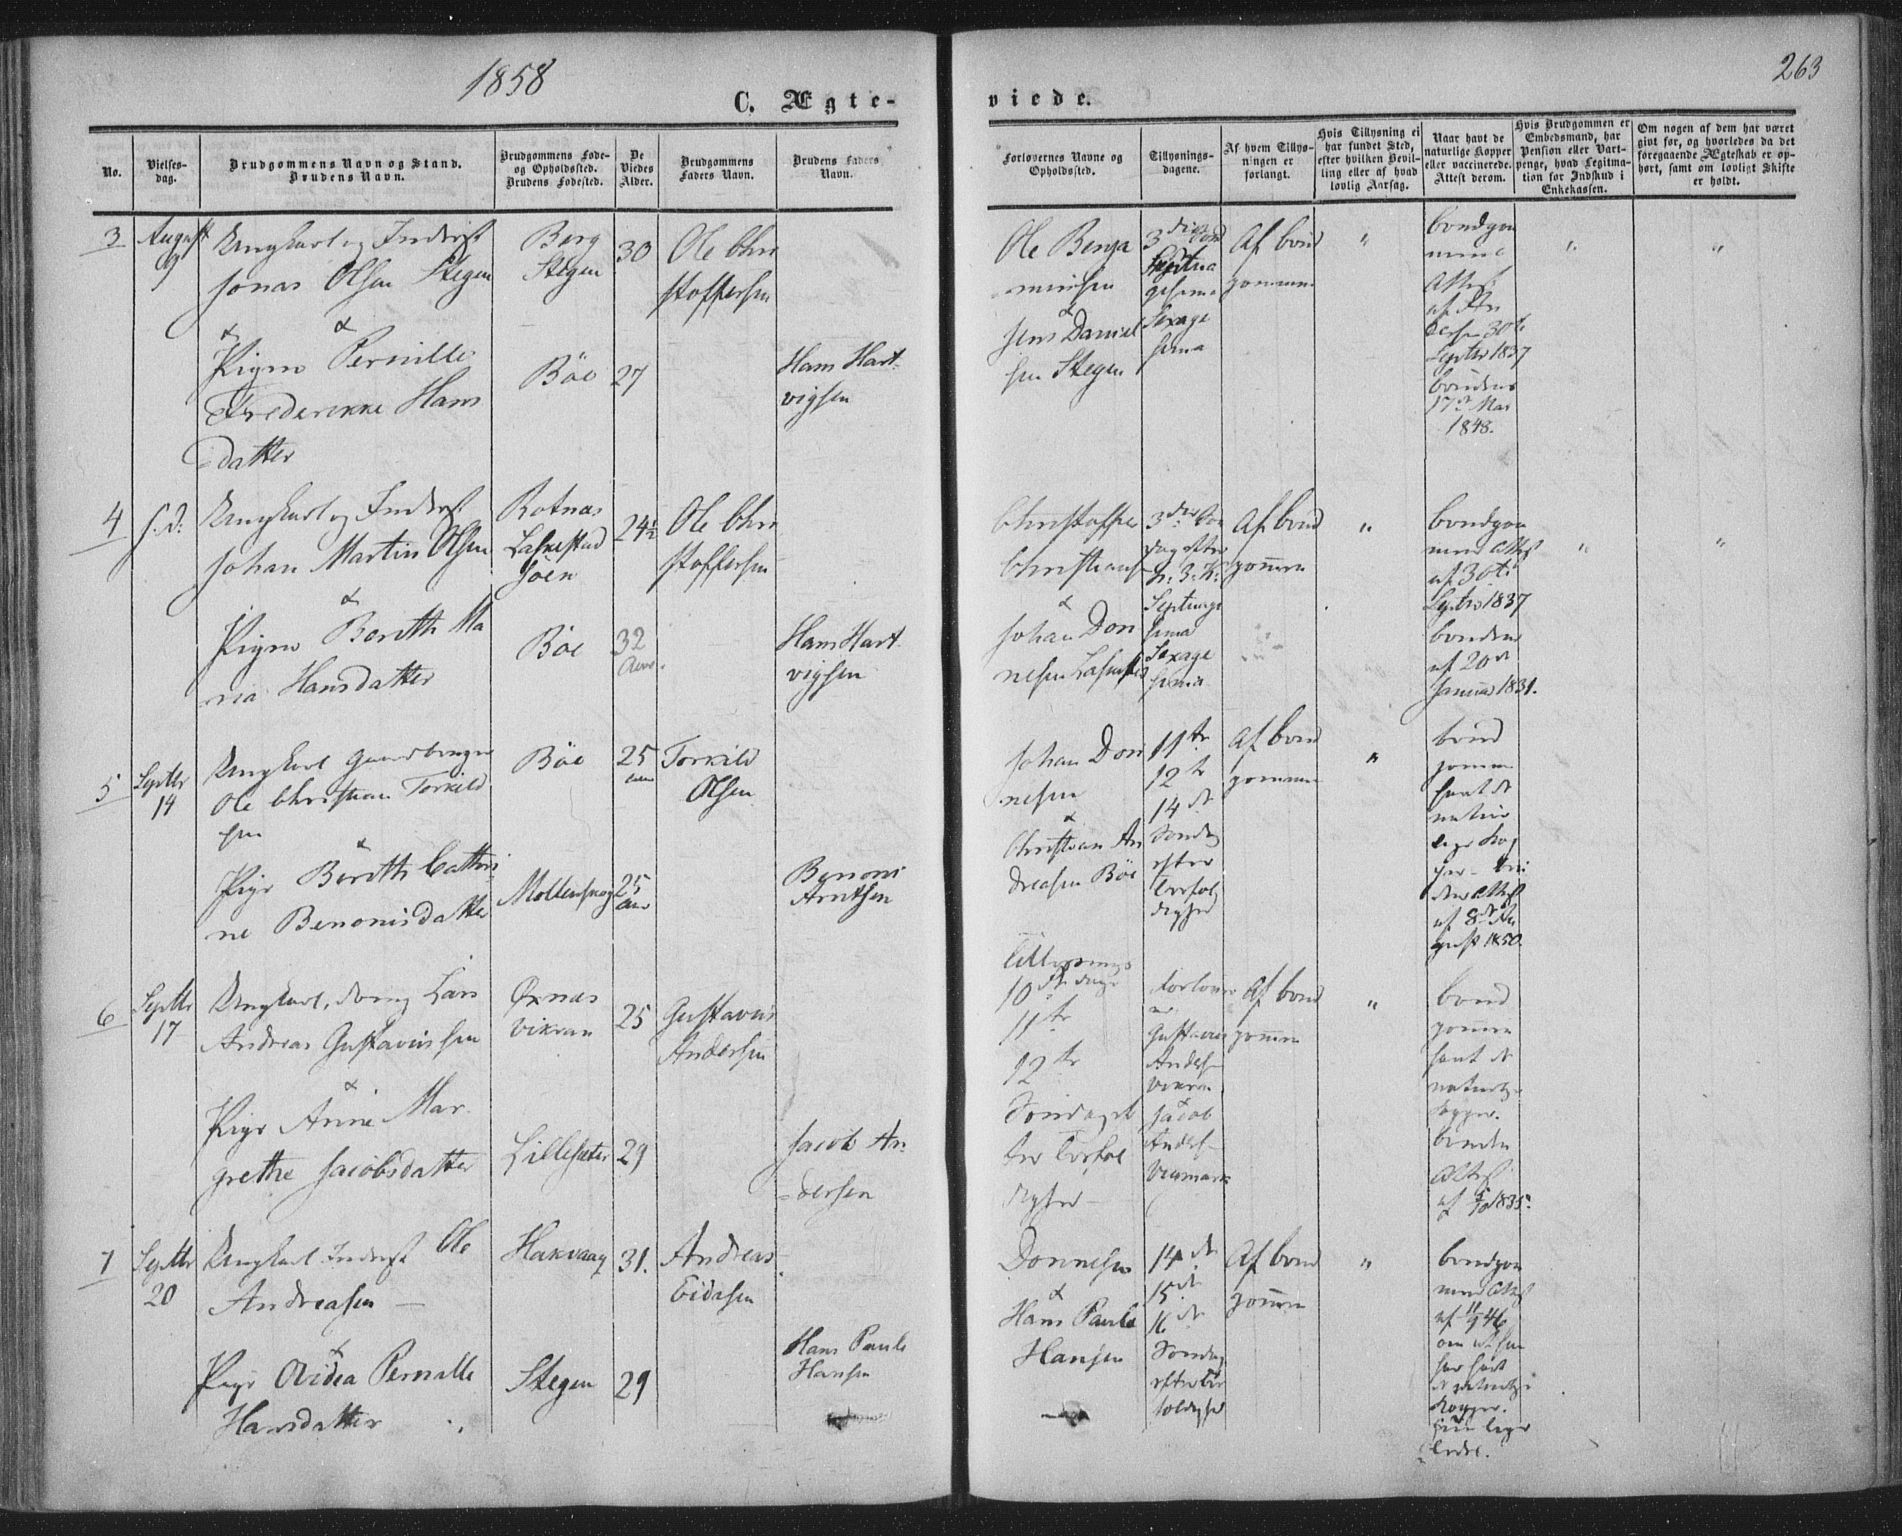 1858
263
C. Ægte-
viede.
No.
Vielses-
dag.
Brudgommens Navn og Stand.
Brudens Navn.
Brudgommens Føde-
og Opholdssted.
Brudens Fødested.
De
Viedes
Alder.
Brudgommens
Faders Navn.
Brudens Faders
Navn.
Forlovernes Navne og
Opholdssted.
Tillysnings-
dagene.
Af hvem Tillys-
ningen er
forlangt.
Hvis Tillysning ei
har fundet Sted,
efter hvilken Bevil-
ling eller af hvad
lovlig Aarsag.
Naar havt de
naturlige Kopper
eller vaccinerede.
Attest derom.
Hvis Brudgommen er
Embedsmand, har
Pension eller Vart-
penge, hvad Legitima-
tion for Indskud i
Enkekassen.
Om nogen af dem har været
givt før, og hvorledes da det
foregaaende Ægteskab er op-
hørt, samt om lovligt Skifte
er holdt.
3
August
9
Ungkarl og Inderst
Jonas Olsen Stegen
&
Pigen Pernille
Frederikke Hans
datter
Borg
Stegen
Böe
30
27
Ole Chri
stoffersen
Hans Hart
vigsen
Ole Benja
minsen
&
Jens Daniel
sen Stegen
Sexage
sima
Af Brud
gommen
"
Brudgom
mens
Attest
Septbr 1837
Brudens
17de Mai
1848.
"
"
4
s. d.
Ungkarl og Inderst
Johan Martin Olsen
&
Pigen Berith Ma
ria Hansdatter
Rotnas
Laskestad
Böe
24½
32
Aar
Ole Chri
stoffersen
Hans Hart
vigsen
Christoffer
Christians
&
Johan Don
nesen
Septuage
sima
Sexage
sima
Af Brud
gommen
"
Brudgom
mens Attest
af 30te
Septbr 1837
Brudens
af 20de
Januar 1831.
"
"
5
Septbr
14
Ungkarl Gaardbruger
Ole Christian Torkild
sen
&
Pige Berith Cathri
ne Benonisdatter
Böe
25
Aar
25
Aar
Torkild
Olsen
Benoni
Arntsen
Johan Don
nesen
&
Christian An
dreasen Böe
11te
12te
14de
Söndag
efter
Trefol
dighed
Af Brud
gommen
"
Brud
gommen
havt de
natur
lige Kop
per - Bru
dens Attest
af 8de Au
gust 1850.
6
Septbr
17
Ungkarl, Lars
Andreas Gustaviussen
&
Pige Anne Mar
grethe Jacobsdatter
Oxnas
Vikran
Lillesæter
25
29
Gustavius
Andersen
Jacob An
dersen
Tillysnings
10de Dage
11te
12te
Söndag ef
ter Trefol
dighed
Forlovere
Gustavius
Anders
Vikran
&
Jacob
Anders
Af Brud
gommen
"
Brud
gommen
havt de
naturlige
Kopper.
Bruden
Attest
7
Septbr
20
Ungkarl Inderst Ole
Andreasen
&
Pige Ovidea Pernille
Hansdatter
Hakvaag
Stegen
31.
29
Andreas
Eidisen
Hans Paulo
Hansen
Donnesen
&
Hans Paulo
Hansen
14de
15de
16de
Söndag
efter Tre
foldighed
Af Brud
gommen
"
Brudgom
mens Attest
de naturlige
Kopper.